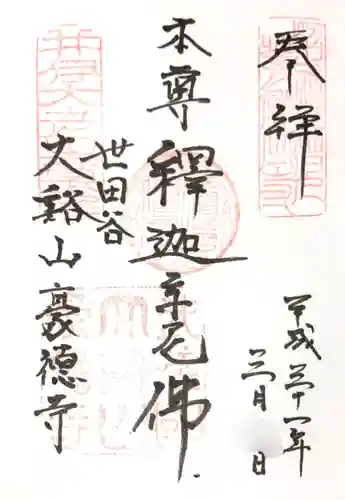 奉拝
平成三十一年
三月　日
本尊釋迦牟尼佛
世田谷
大谿山豪徳寺